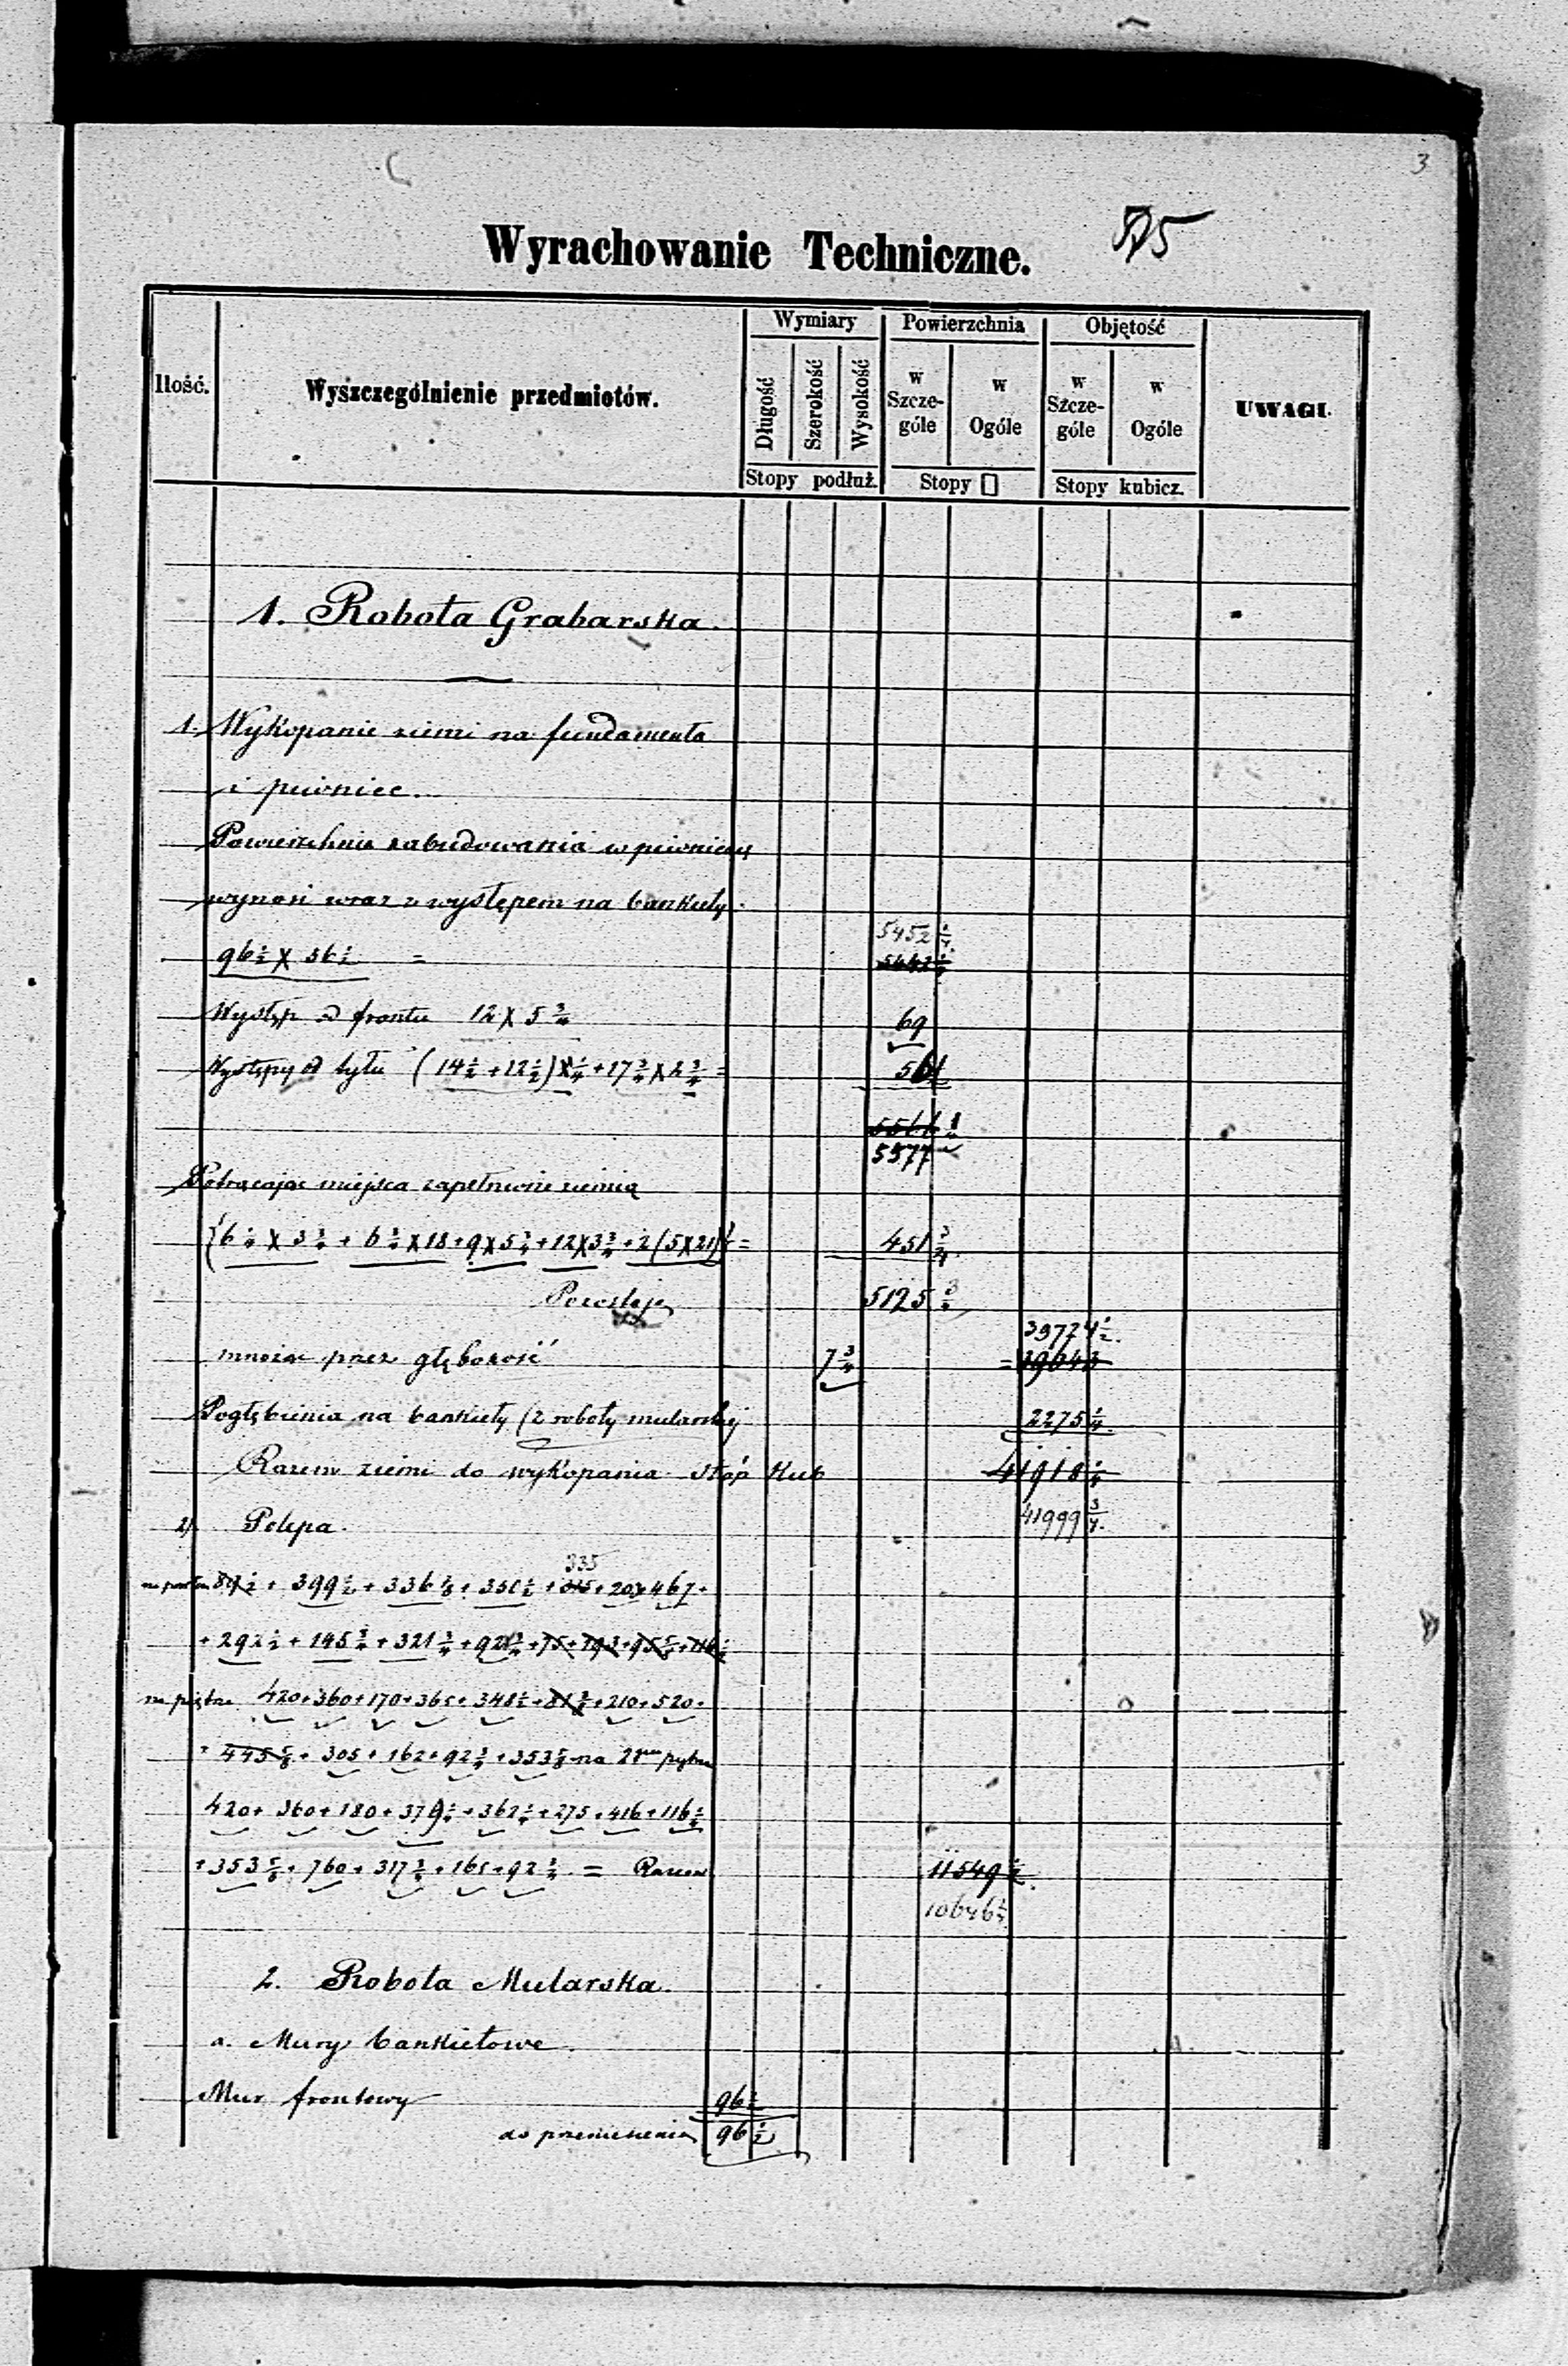 3
Wyrachowanie Techniczne.
Ilość.
Wyszczególnienie przedmiotów.
Wymiary
Długość
Szerokość
Wysokość
Stopy podłuż.
Powierzchnia
w Szcze-góle
w Ogóle
Stopy □
Objętość
w Szcze-góle
w Ogóle
Stopy kubicz.
UWAGI.
1. Robota Grabarska.
1. Wykopanie ziemi na fundamenta
i piwnice.
Powierzchnia zabudowania w piwnicy
wynosi wraz z występem na bankiety
96½ X 56½ = 5452¼
Występ od frontu 12 X 5¾ 69
Występy od tyłu (14½ + 12½) X ¼ + 17¾ X 2¾ = 56
5577
Potrącając miejsca zapełnione ziemią
6 X 3 + 6 X 18 + 9 X 5 + 12 X 3¾ + 2 (5 X 21) = 451¾
Pozostaje 5125
39724½
mnożąc przez głębokość 7¾ =
Pogłębienia na bankiety (z roboty mularskiej 2275¼
Razem ziemi do wykopania stóp kub 41918
2) Polepa. 41999¾
335
+ 399½ + 336 + 351½ + + 20 + 467 +
+ 292½ + 145¾ + 321¾ + 92 + 75
na piętrze 420 + 360 + 170 + 365 + 348½ + 81 + 210 + 520 +
+ 445 + 305 + 162 + 92¾ + 353 na 2 piętrze
420 + 360 + 180 + 379 + 362 + 275 + 416 + 116
+ 353 + 760 + 317¾ + 165 + 92¾ = Razem 11549½
10646
2. Robota Mularska.
a. Mury bankietowe.
Mur frontowy 96½
do przeniesienia 96½